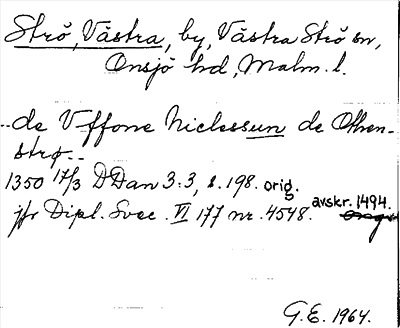 Strö, Västra, by, Västra Strö sn,
Onsjö hd, Malm. l.
..de Vffone Niclessun de Othen-
strø..
1350 17/3 DDan 3:3, s. 198. orig.
jfr Dipl. Svec. VI 177 nr. 4548. avskr. 1494.
G.E. 1964.